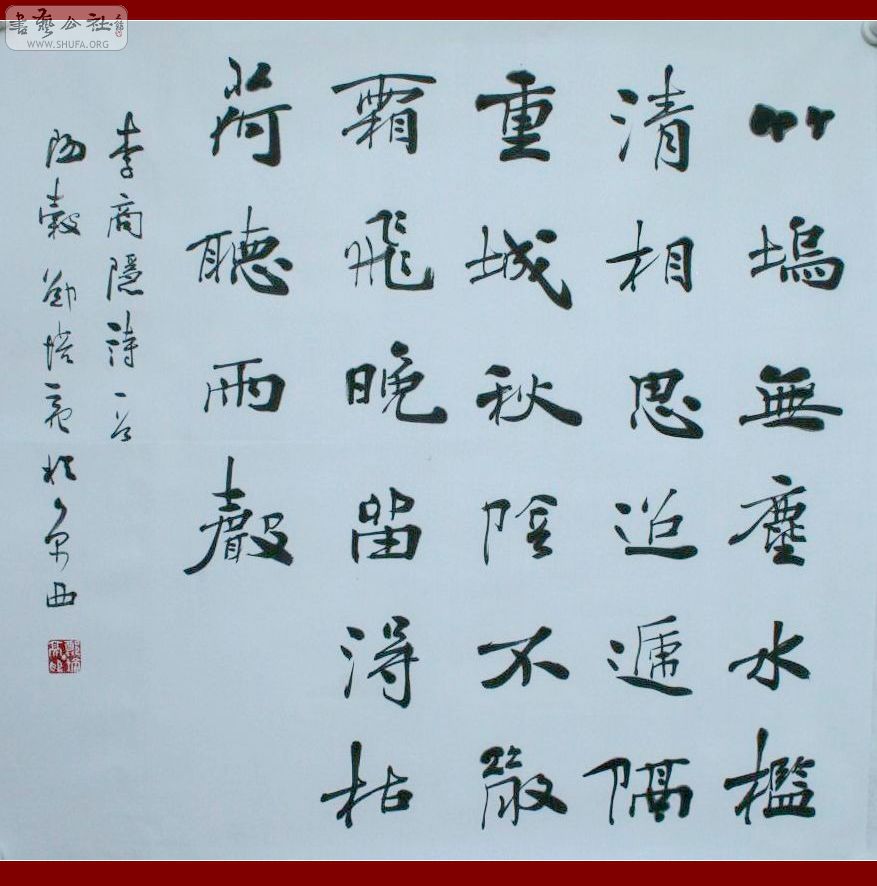 竹塢無塵水檻
清相思迢遞隔
重城秋陰不散
霜飛晚留得枯
荷聽雨聲
李商隱詩一首
陽穀 培亮於 曲
書藝公社
WWW.SHUFA.ORG